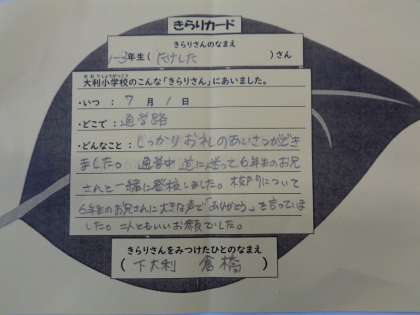 きらりカード
きらりさんのなまえ
年生( たけした )さん
おおりしょうがっこう
大利小学校のこんな「きらりさん」にあいました。
・いつ : 7 月 1 日
・どこで : 通学路
・どんなこと : しっかりお礼のあいさつができ
ました。通学中 道に迷って6年生のお兄
さんと一緒に登校しました。校門について
6年生のお兄さんに大きな声で「ありがとう」を言っていま
した。二人ともいいお顔でした。
きらりさんをみつけたひとのなまえ
( 下大利 倉橋 )